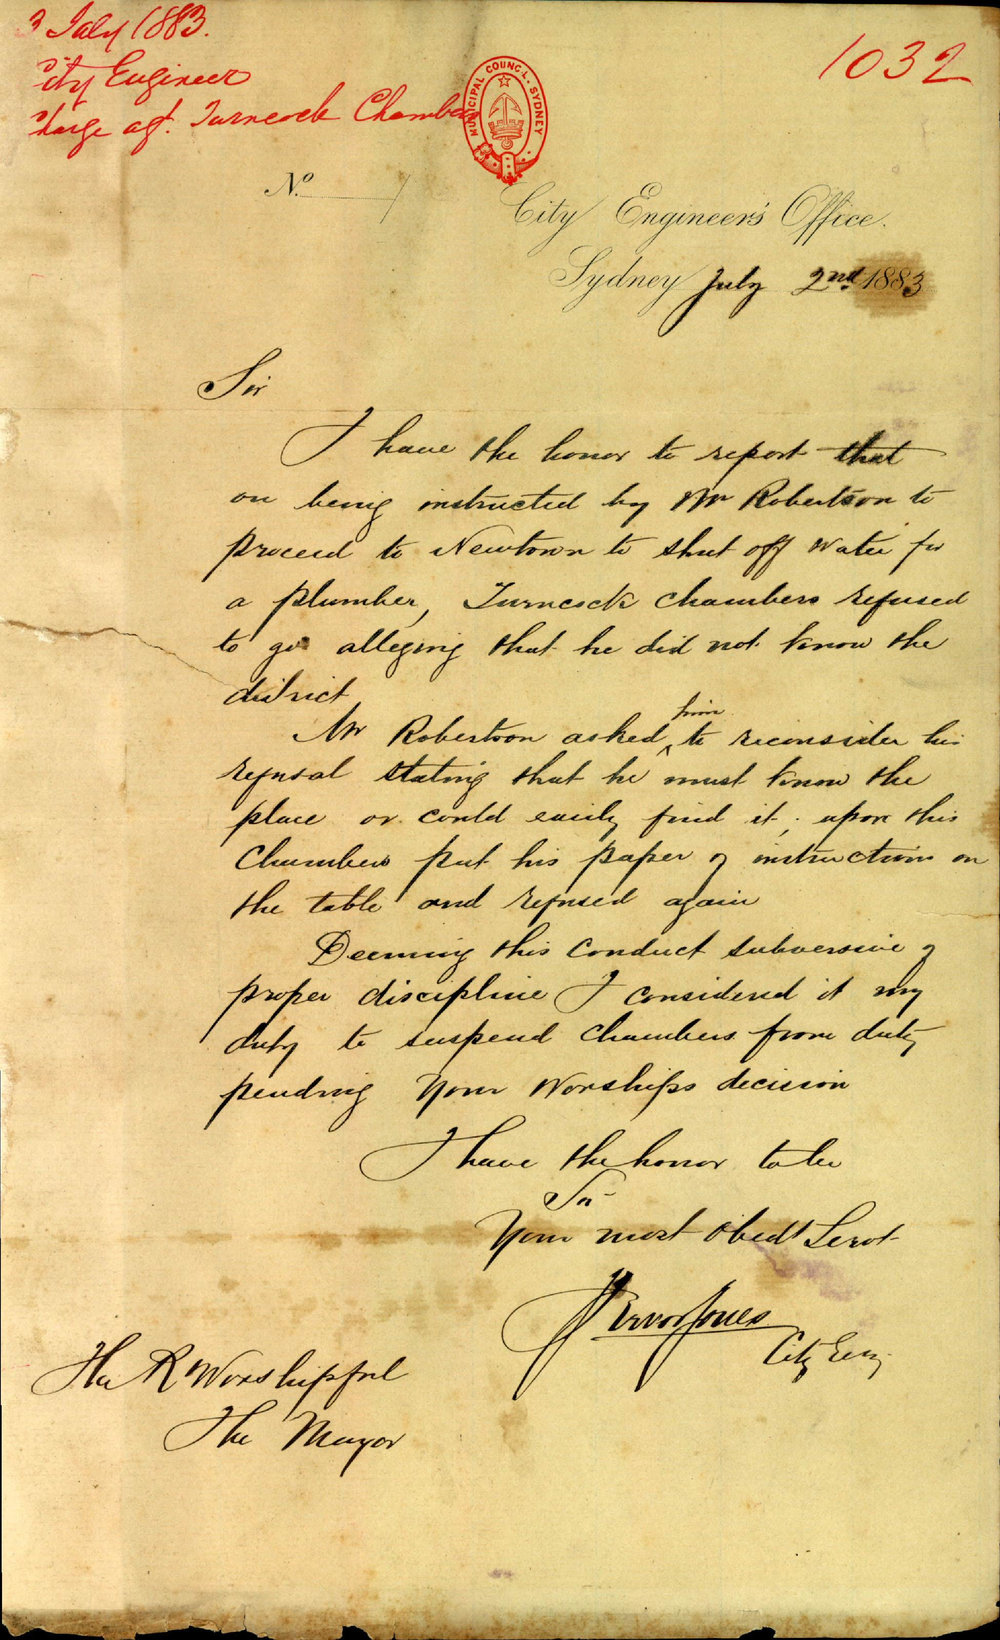 3 July 1883.
City Engineer
Charge agt. Turncock Chambers
1032
MUNICIPAL COUNCIL. SYDNEY
No
City Engineer's Office.
Sydney July 2nd 1883
Sir
I have the honor to report that
on being instructed by Mr Robertson to
proceed to Newtown to shut off water for
a plumber, Turncock Chambers refused
to go alleging that he did not know the
district
Mr Robertson asked him to reconsider his
refusal stating that he must know the
place or could easily find it; upon this
Chambers put his paper of instructions on
the table and refused again
Deeming this conduct subversive of
proper discipline I considered it my
duty to suspend Chambers from duty
pending Your Worships decision
I have the honor to be
Sir
Your most obedt Servt
Trevor Jones
City Eng.
The R Worshipful
The Mayor